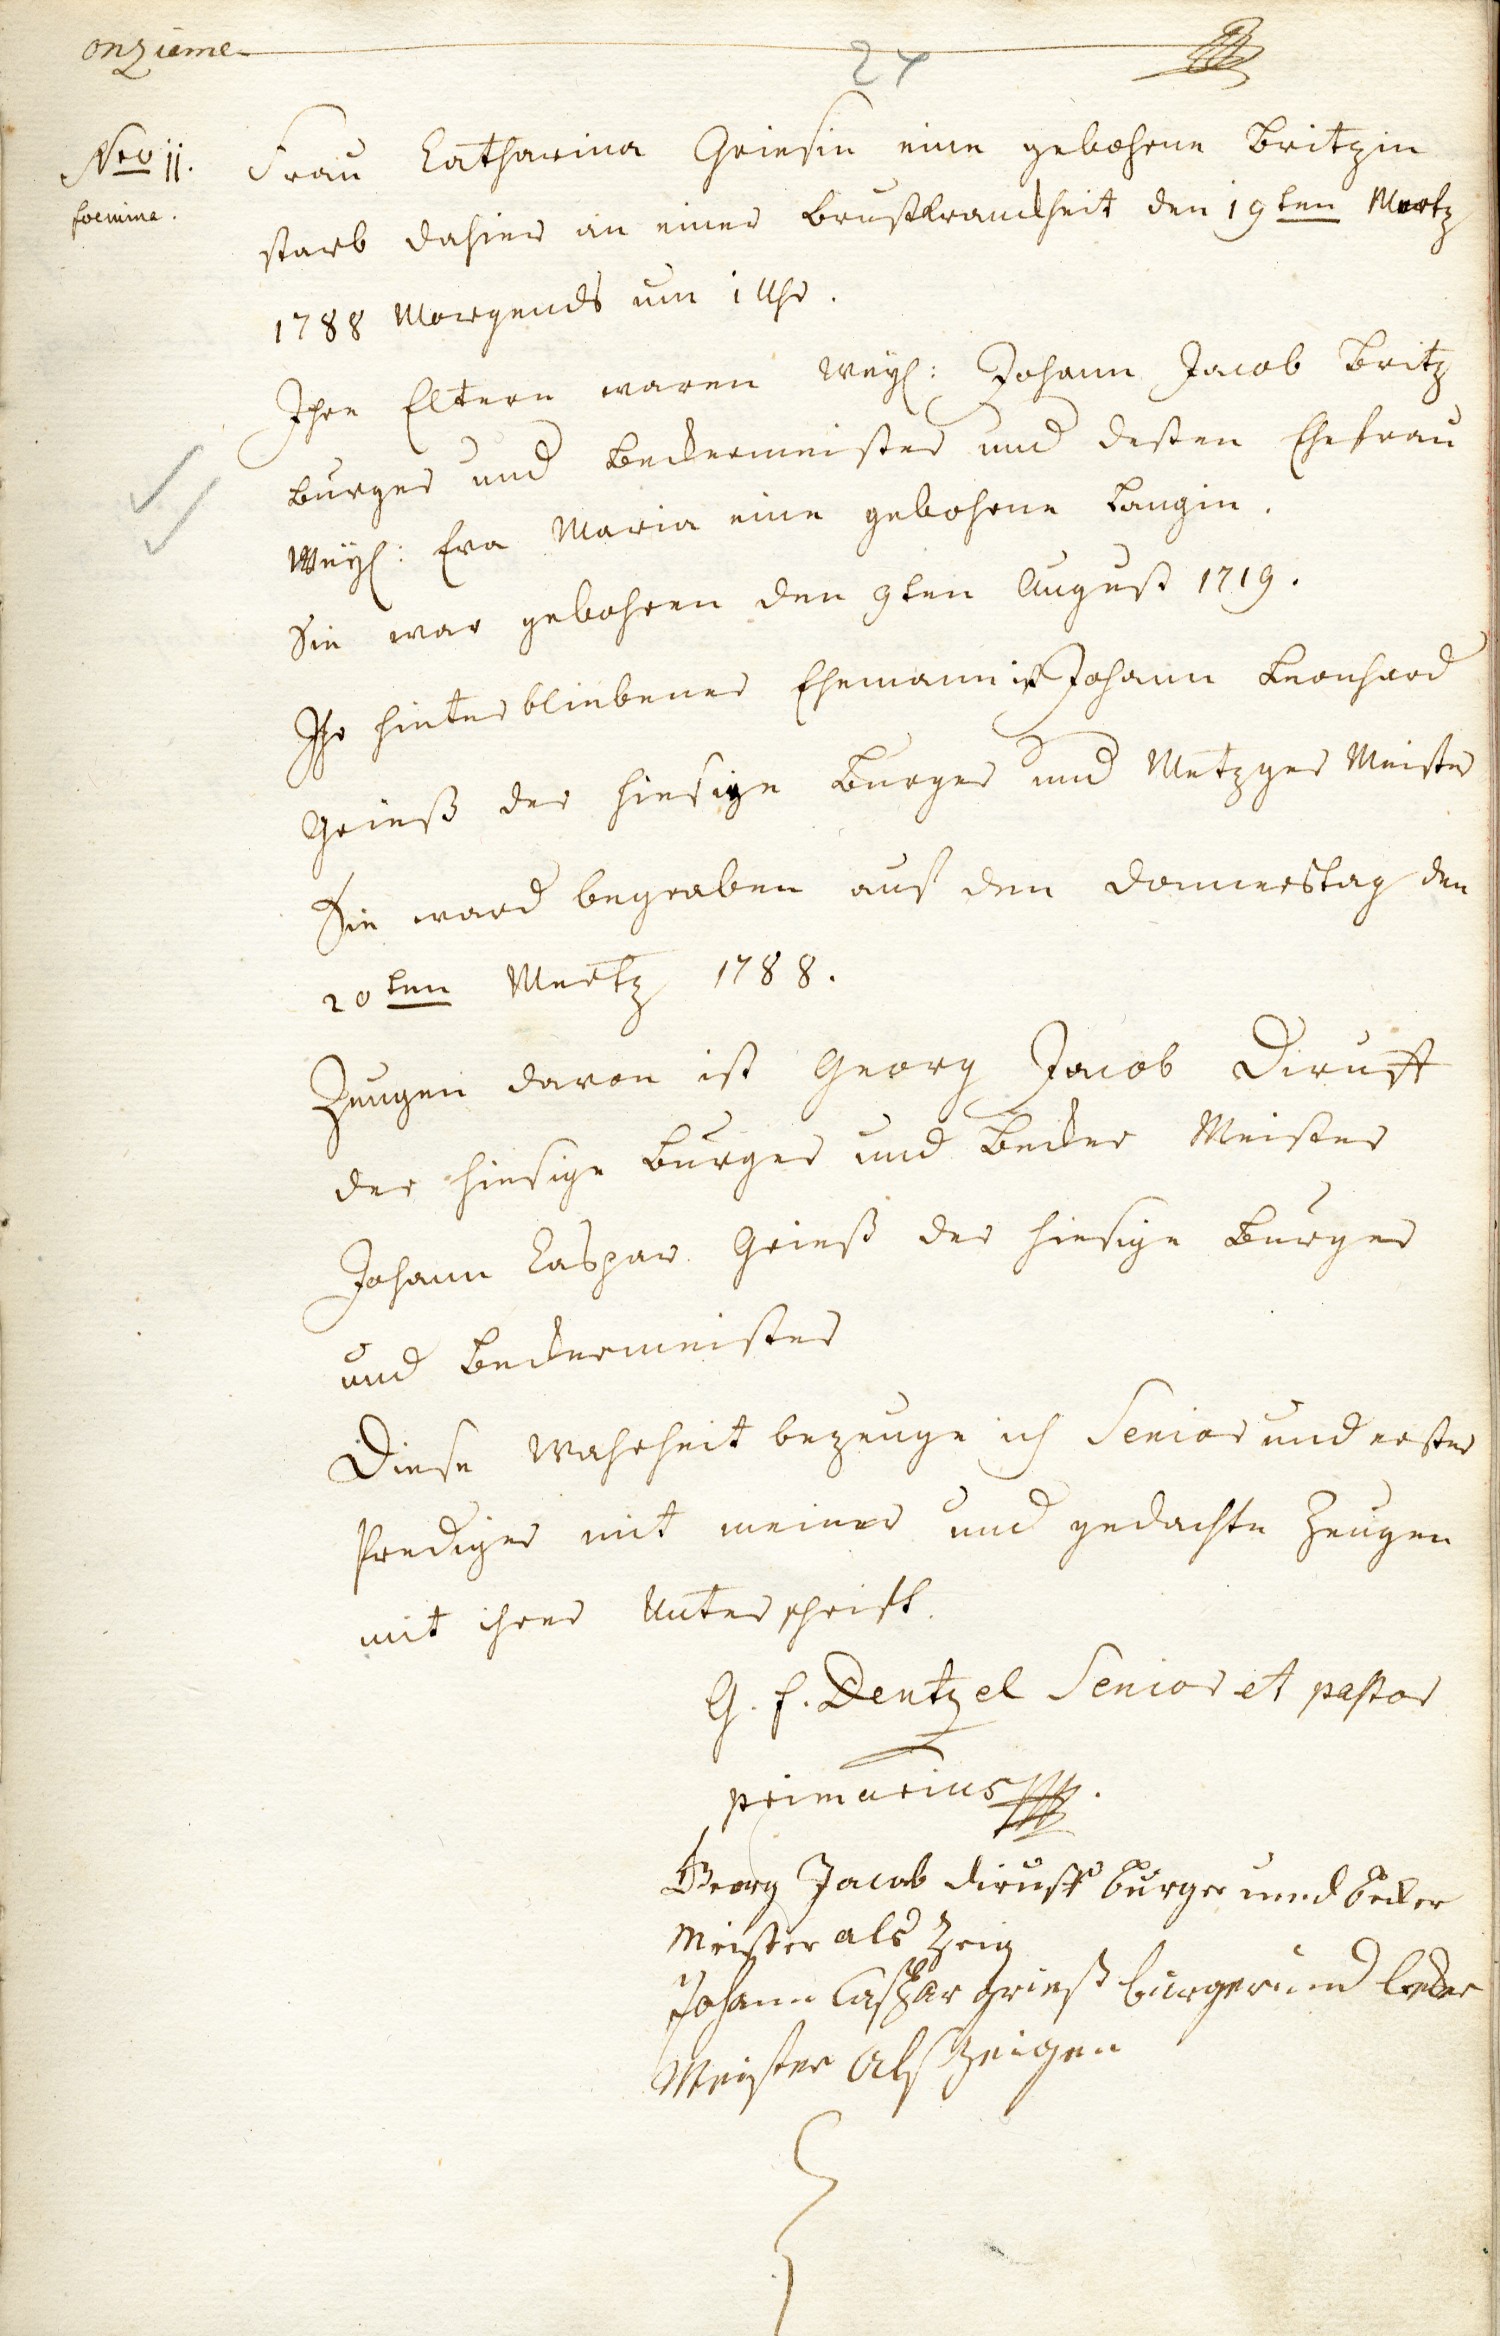 onzieme
24
Nro 11.
foemina.
Frau Catharina Griesin eine gebohrne Britzin
starb dahier an einer Brustkranckheit den 19ten Mertz
1788 Morgends um 1 Uhr.
Ihre Eltern waren Weyl: Johann Jacob Britz
Burger und Beckermeister und dessen Ehefrau
Weyl: Eva Maria eine gebohrne Langin.
Sie war gebohren den 9ten August 1719.
Ihr hinterbliebener Ehemann ist Johann Leonhard
Grieß der hiesige Burger und Metzger Meister
Sie ward begraben auf den Donnerstag den
20ten Mertz 1788.
Zeugen davon ist Georg Jacob Diruff
der hiesige Burger und Becker Meister
Johann Caspar Grieß der hiesige Burger
und Beckermeister
Diese Wahrheit bezeuge ich Senior und erster
Prediger mit meiner und gedachte Zeugen
mit ihrer Unterschrift.
G. F. Dentzel Senior et pastor
primarius.
Georg Jacob diruff burger unnd becker
Meister als Zeig
Johann Caspar grieß burger und becker
Meister alß Zeigen